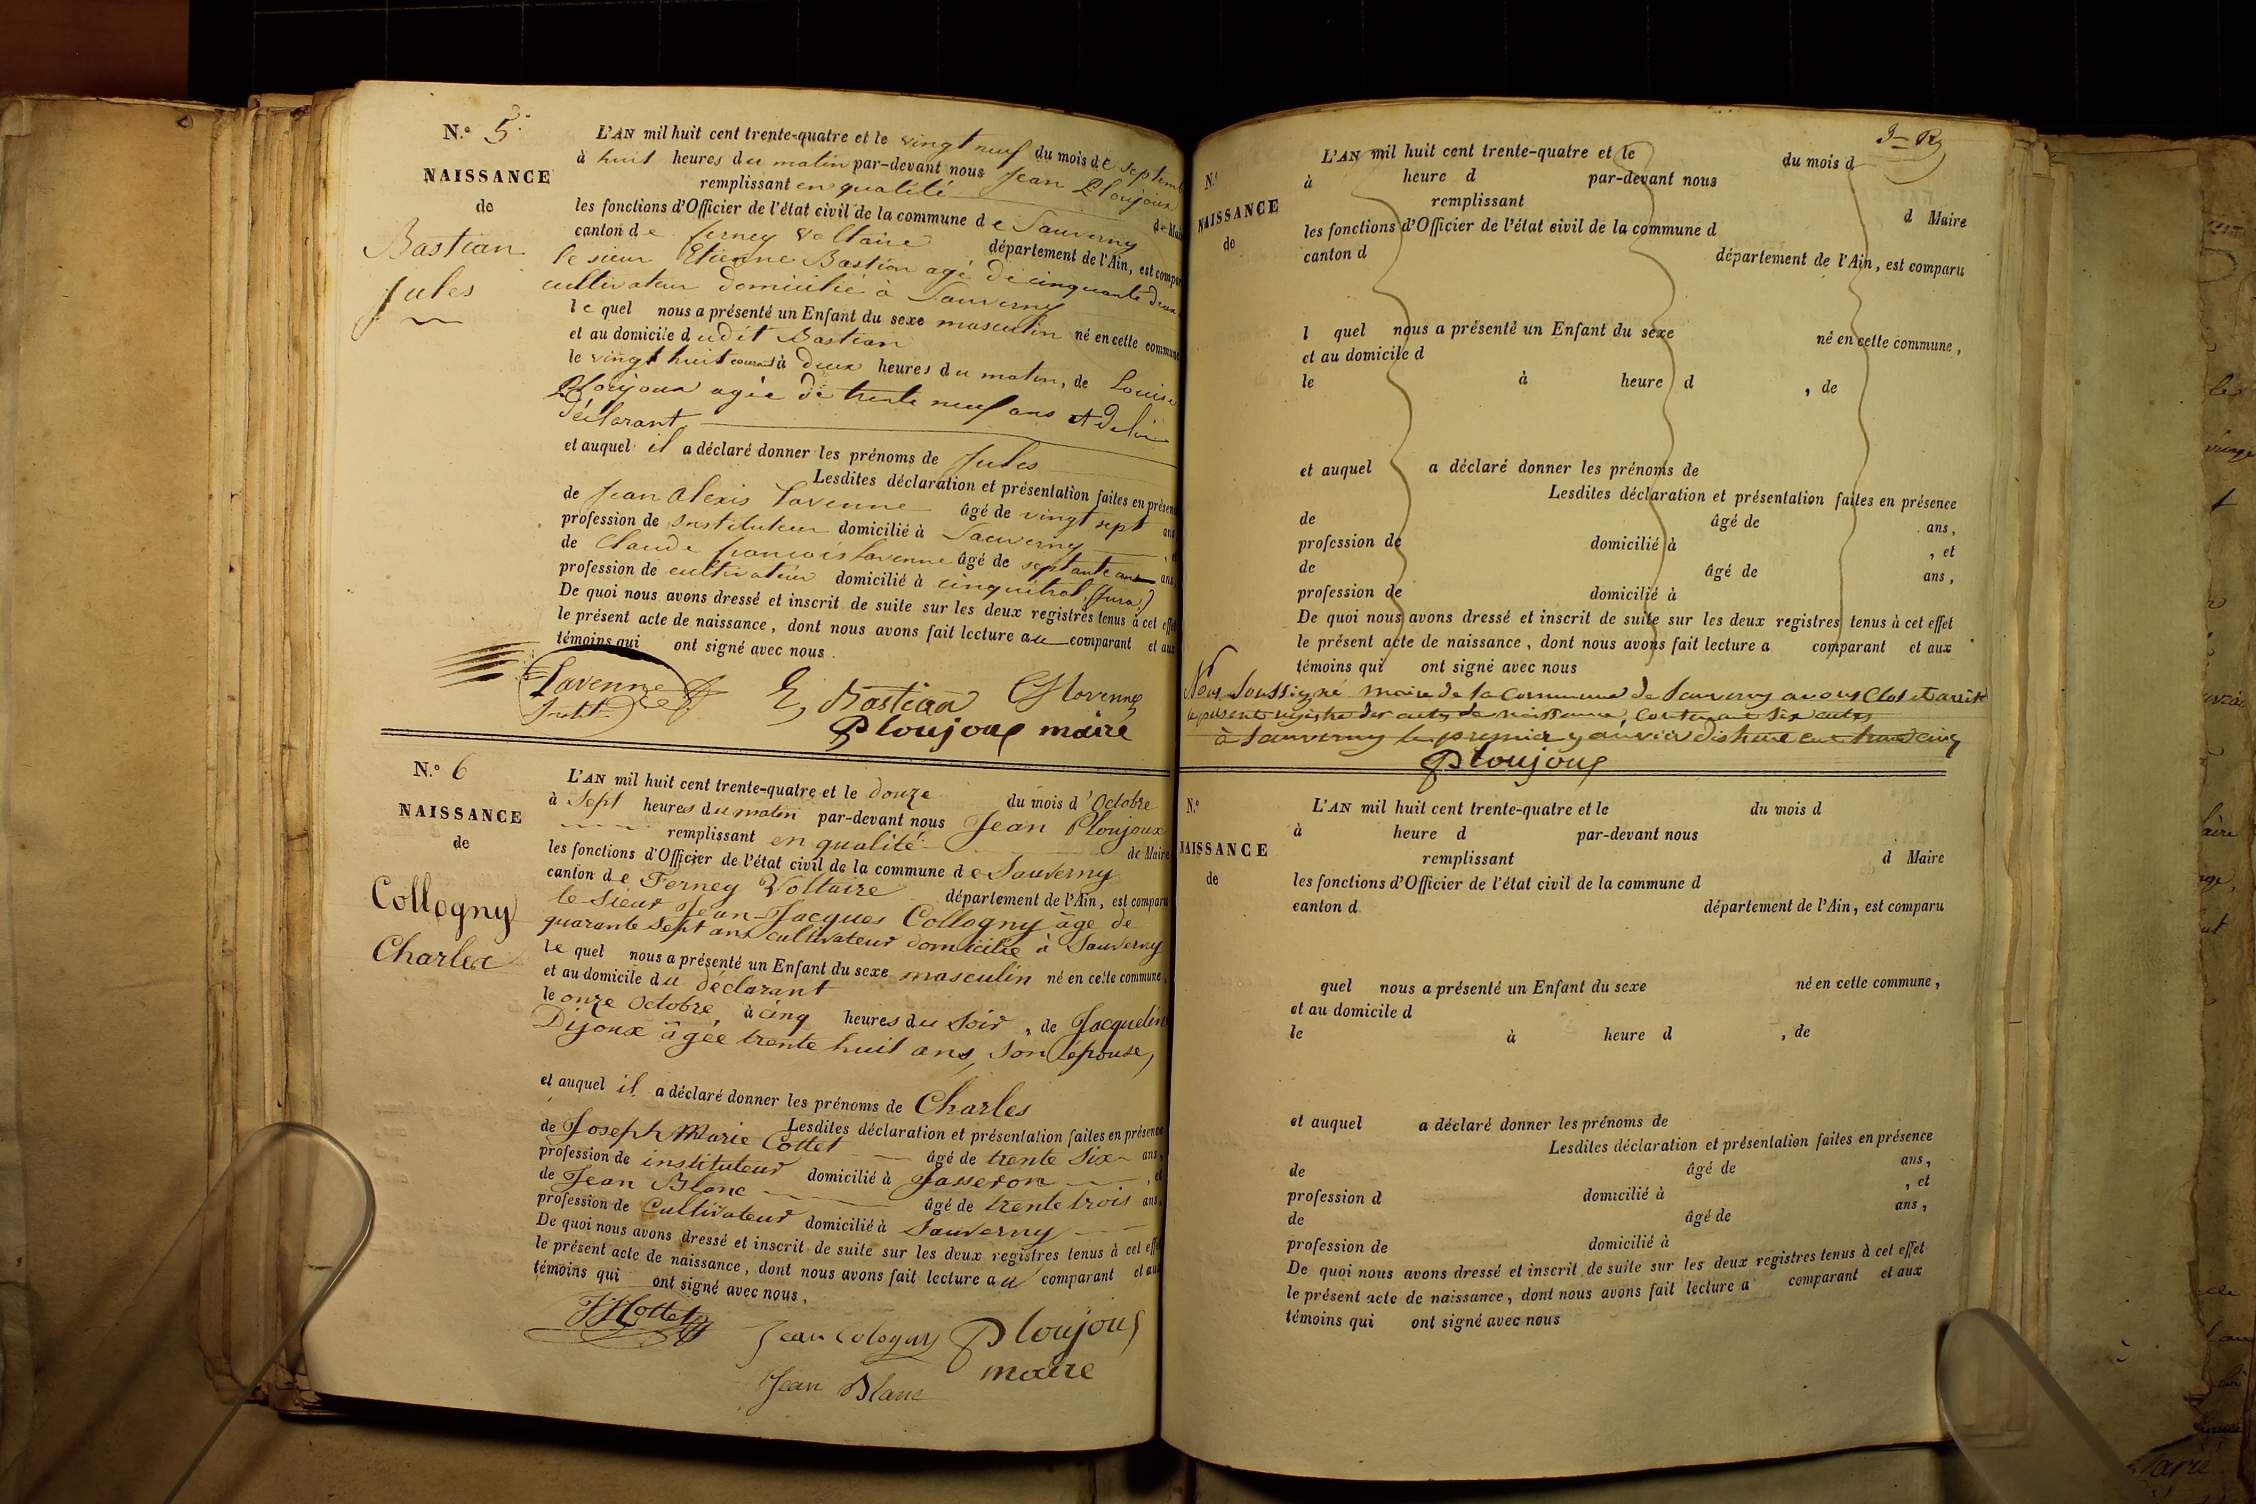 N.° 5.
NAISSANCE
de
Bastian
Jules
L'AN mil huit cent trente-quatre et le vingt neuf du mois de Septemb
à huit heures du matin par-devant nous Jean Ploujoux
remplissant en qualité de Mai
les fonctions d'Officier de l'état civil de la commune de Sauverny
canton de ferney Voltaire département de l'Ain, est compar
le sieur Etienne Bastian agé de cinquante deux
cultivateur domicilié à Sauverny
le quel nous a présenté un Enfant du sexe masculin né en cette commune
et au domicile dudit Bastian
le vingt huit courant à deux heures du matin, de Louise
Ploujoux agée de trente neuf ans et de lui
déclarant
et auquel il a déclaré donner les prénoms de Jules
Lesdites déclaration et présentation faites en présen
de Jean Alexis Lavenne âgé de vingt sept ans
profession de Instituteur domicilié à Sauverny , et
de Claude françois Lavenne âgé de septante ans ans
profession de cultivateur domicilié à cinquétral (Jura)
De quoi nous avons dressé et inscrit de suite sur les deux registres tenus à cet effet
le présent acte de naissance, dont nous avons fait lecture au comparant et aux
témoins qui ont signé avec nous.
Lavenne
Instit.
E, Bastian
Cf Lavenne
Ploujoux maire
N.° 6
NAISSANCE
de
Collogny
Charles
L'AN mil huit cent trente-quatre et le douze du mois d'Octobre
à Sept heures du matin par-devant nous Jean Ploujoux
remplissant en qualité de Maire
les fonctions d'Officier de l'état civil de la commune de Sauverny
canton de Ferney Voltaire département de l'Ain, est comparu
le Sieur Jean-Jacques Collogny âgé de
quarante Sept ans cultivateur domicilié à Sauverny
le quel nous a présenté un Enfant du sexe masculin né en cette commune,
et au domicile du déclarant
le onze Octobre, à cinq heures du Soir, de Jacqueline
Dijoux âgée trente huit ans, Son épouse,
et auquel il a déclaré donner les prénoms de Charles
Lesdites déclaration et présentation faites en présence
de Joseph Marie Cottet âgé de trente Six ans,
profession de instituteur domicilié à Jasseron , et
de Jean Blanc âgé de trente trois ans,
profession de Cultivateur domicilié à Sauverny
De quoi nous avons dressé et inscrit de suite sur les deux registres tenus à cet effet
le présent acte de naissance, dont nous avons fait lecture au comparant et aux
témoins qui ont signé avec nous.
JMCottet
Jean Cologny
Ploujoux
maire
Jean Blanc
N.°
NAISSANCE
de
L'AN mil huit cent trente-quatre et le du mois d
à heure d par-devant nous
remplissant d Maire
les fonctions d'Officier de l'état civil de la commune d
canton d département de l'Ain, est comparu
l quel nous a présenté un Enfant du sexe né en cette commune,
et au domicile d
le à heure d , de
et auquel a déclaré donner les prénoms de
Lesdites déclaration et présentation faites en présence
de âgé de ans,
profession de domicilié à , et
de âgé de ans,
profession de domicilié à
De quoi nous avons dressé et inscrit de suite sur les deux registres tenus à cet effet
le présent acte de naissance, dont nous avons fait lecture a comparant et aux
témoins qui ont signé avec nous
Nous Soussigné maire de la Commune de Sauverny avons Clos et arrêté
le présent registre des actes de naissance, Contenant Six actes
à Sauverny le premier janvier dix huit cent trente cinq
Ploujoux
N.°
NAISSANCE
de
L'AN mil huit cent trente-quatre et le du mois d
à heure d par-devant nous
remplissant d Maire
les fonctions d'Officier de l'état civil de la commune d
canton d département de l'Ain, est comparu
quel nous a présenté un Enfant du sexe né en cette commune,
et au domicile d
le à heure d , de
et auquel a déclaré donner les prénoms de
Lesdites déclaration et présentation faites en présence
de âgé de ans,
profession d domicilié à , et
de âgé de ans,
profession de domicilié à
De quoi nous avons dressé et inscrit de suite sur les deux registres tenus à cet effet
le présent acte de naissance, dont nous avons fait lecture a comparant et aux
témoins qui ont signé avec nous